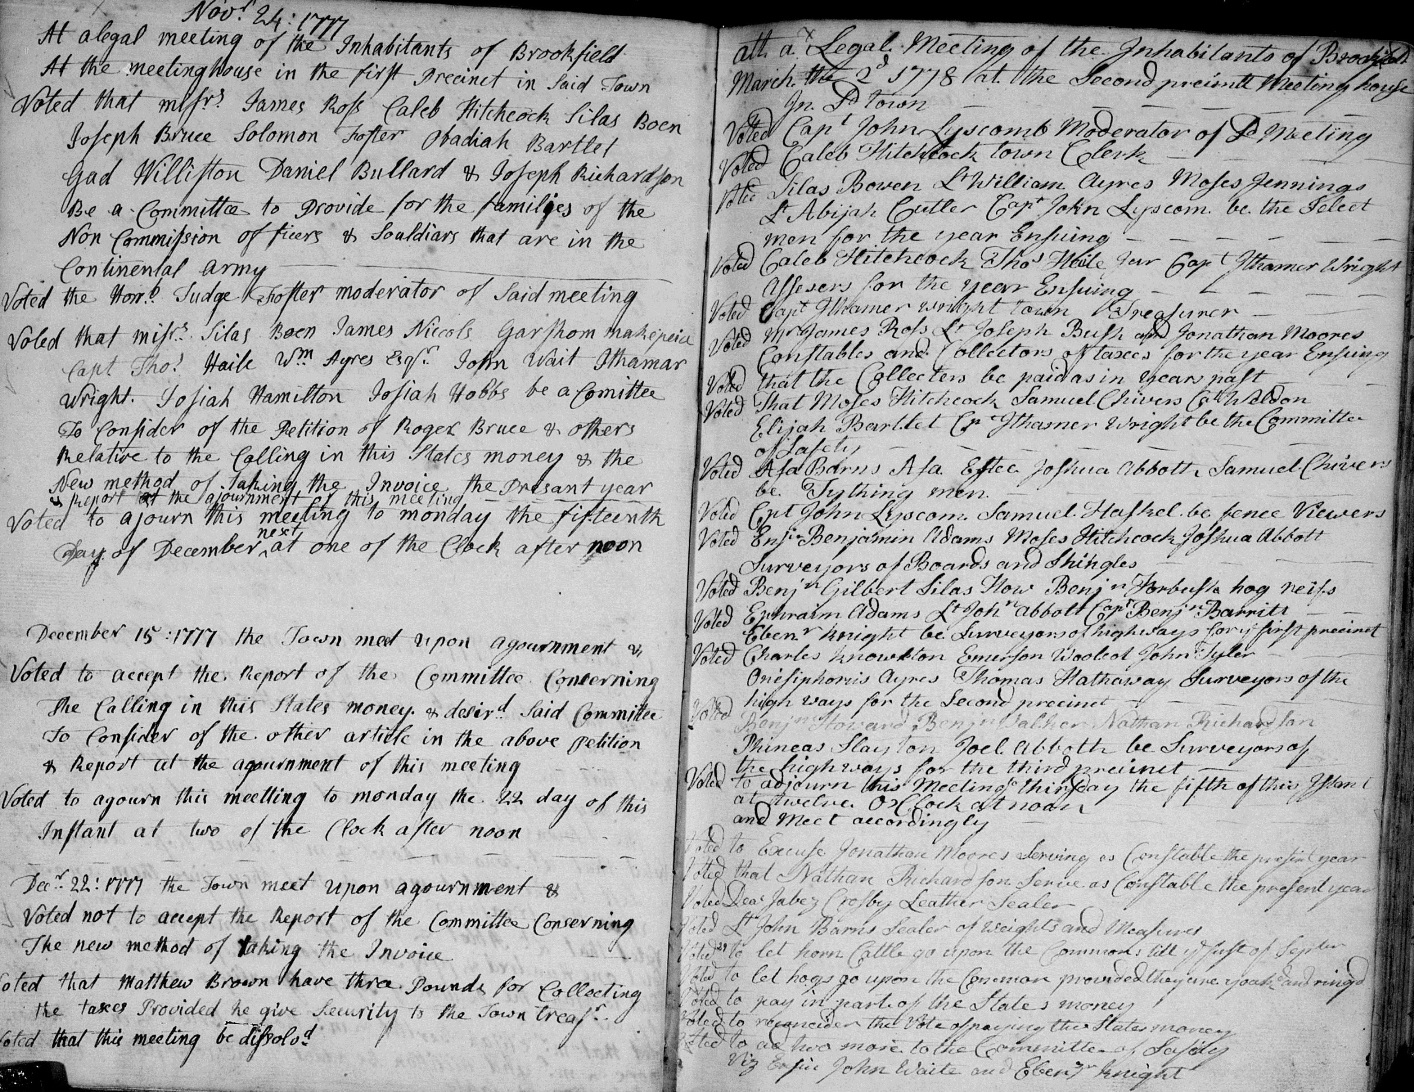 Novr. 24: 1777
At a legal meeting of the Inhabitants of Brookfield
At the meetinghouse in the first Precinct in Said Town
Voted that missrs. James Ross Caleb Hitchcock Silas Boen
Joseph Bruce Solomon Foster Obadiah Bartlet
Gad Williston Daniel Bullard & Joseph Richardson
Be a Committee to Provide for the families of the
Non Commission officers & Souldiars that are in the
Continental Army
Voted the Honbl. Judge Foster moderator of Said meeting
Voted that missrs. Silas Boen James Nicols Garshom makepeice
Capt Thos. Haile Wm. Ayres Esqr. John Wait Ithamar
Wright. Josiah Hamilton Josiah Hobbs be a Comittee
To Consider of the Petition of Roger Bruce & others
Relative to the Calling in this States money & the
New method of taking the Invoice the Presant year
& Report at the ajournment of this meeting
Voted to ajourn this meeting to monday the fifteenth
Day of December next at one of the Clock after noon
December 15: 1777 the Town meet upon agournment &
Voted to accept the Report of the Committee Concerning
The Calling in this States money. & desird. Said Committee
To Consider of the other article in the above Petition
& Report at the agournment of this meeting
Voted to agourn this meetting to monday the 22 day of this
Instant at two of the Clock after noon
Decr. 22: 1777 the Town meet upon agournment &
Voted not to accept the Report of the Committee Conserning
The new method of taking the Invoice
Voted that Matthew Brown have three Pounds for Collecting
the taxes Provided he give Security to the Town treasr.
Voted that this meeting be dissolsd
att a Legal Meeting of the Inhabitants of Brookfield
March the 2d 1778 at the Second precinct Meeting house
In Sd town
Voted Capt John Lyscomb Moderator of Sd Meeting
Voted Caleb Hitchcock Town Clerk
Voted Silas Bowen Lt William Ayres Moses Jennings
Lt Abijah Cutler Capt John Lyscom be the Select
men for the year Ensuing
Voted Caleb Hitchcock Thos Haile Jur Capt Ithamer Wright
Assesers for the year Ensuing
Voted Capt Ithamer wright town Treasurer
Voted Mr James Ross Lt Joseph Bush and Jonathan Moores
Constables and Collectors of taxes for the year Ensuing
Voted that the Collecters be paid as in years past
Voted That Moses Hitchcock Samuel Chivers Walldon
Elijah Bartlet Cpt Ithamer Wright be the Committee
of Safety
Voted Asa Barns Asa Estee Joshua Abbott Samuel Chivers
be Tything men
Voted Cpt John Lyscom Samuel Haskel be fence Viewers
Voted Ensn Benjamin Adams Moses Hitchcock Joshua Abbott
Surveyors of Boards and Shingles
Voted Benjn Gilbert Silas How Benjn Forbush hog reifs
Voted Ephraim Adams Lt Johnn abbott Capt Benjn Barritt
Ebenr Knight be Surveyors of highways for ye first precinct
Voted Charles Knowlton Emerson Woolcot John Tyler
Onesiphorus Ayres Thomas Hathaway Surveyors of the
high ways for the Second precinct
Voted Benjn Howard Benjn Walker Nathan Richardson
Phineas Slayton Joel Abbott be Surveyors of
the highways for the third precinct
Voted to adjourn this Meeting thirsday the fifth of this Instant
at twelve O Clock at noon
and Meet accordingly
Voted to Excuse Jonathan Moores Serving as Constable the present year
Voted that Nathan Richardson Serve as Constable the present year
Voted Dea Jabez Crosby Leather Sealer
Voted Lt John Barns Sealer of Weights and Measures
Voted to let horn Cattle go upon the Commons till ye first of Septer
Voted to let hogs go upon the Common provided they are yoakd and ringd
Voted to pay in part of the States money
Voted to reconsider the Vote of paying the States money
Voted to ad two more to the Committee of Safety
Viz John Waite and Ebenzr Knight